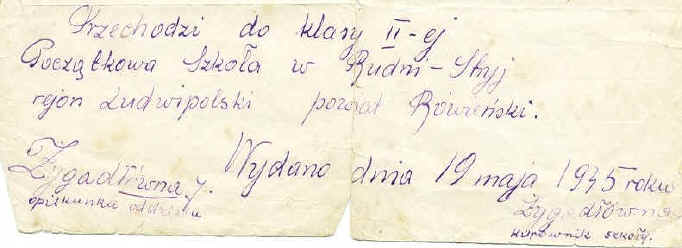 Przechodzi do klasy II-ej
Początkowa Szkoła w Rudni-Stryj
rejon Ludwipolski powiat Rówieński.
Wydano dnia 19 maja 1945 roku
Zygadłówna J.
opiekunka oddziału
Zygadłówna
kierownik szkoły.